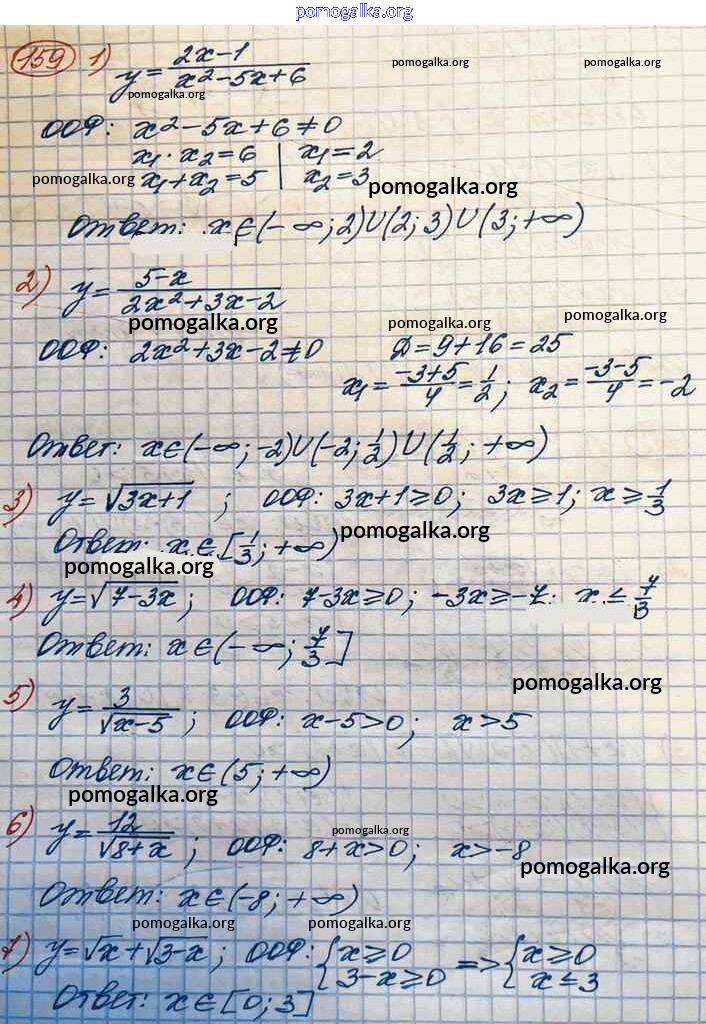 pomogalka.org
159 1) y = (2x-1)/(x²-5x+6)
pomogalka.org pomogalka.org
pomogalka.org
ООФ: x²-5x+6≠0
x₁·x₂=6 | x₁=2
pomogalka.org x₁+x₂=5 | x₂=3
pomogalka.org
Ответ: x∈(-∞;2)∪(2;3)∪(3;+∞)
2) y = (5-x)/(2x²+3x-2)
pomogalka.org pomogalka.org pomogalka.org
ООФ: 2x²+3x-2≠0 Д=9+16=25
x₁ = (-3+5)/4 = 1/2; x₂ = (-3-5)/4 = -2
Ответ: x∈(-∞;-2)∪(-2;1/2)∪(1/2;+∞)
3) y=√(3x+1) ; ООФ: 3x+1≥0; 3x≥1; x≥1/3
pomogalka.org
Ответ: x∈[1/3;+∞)
pomogalka.org
4) y=√(7-3x) ; ООФ: 7-3x≥0; -3x≥-7; x≤7/3
Ответ: x∈(-∞;7/3]
pomogalka.org
5) y=3/√(x-5) ; ООФ: x-5>0; x>5
Ответ: x∈(5;+∞)
pomogalka.org
6) y=12/√(8+x) ; ООФ: 8+x>0; x>-8
pomogalka.org
pomogalka.org
Ответ: x∈(-8;+∞)
pomogalka.org pomogalka.org
7) y=√x+√(3-x) ; ООФ: {x≥0 3-x≥0 => {x≥0 x≤3
Ответ: x∈[0;3]